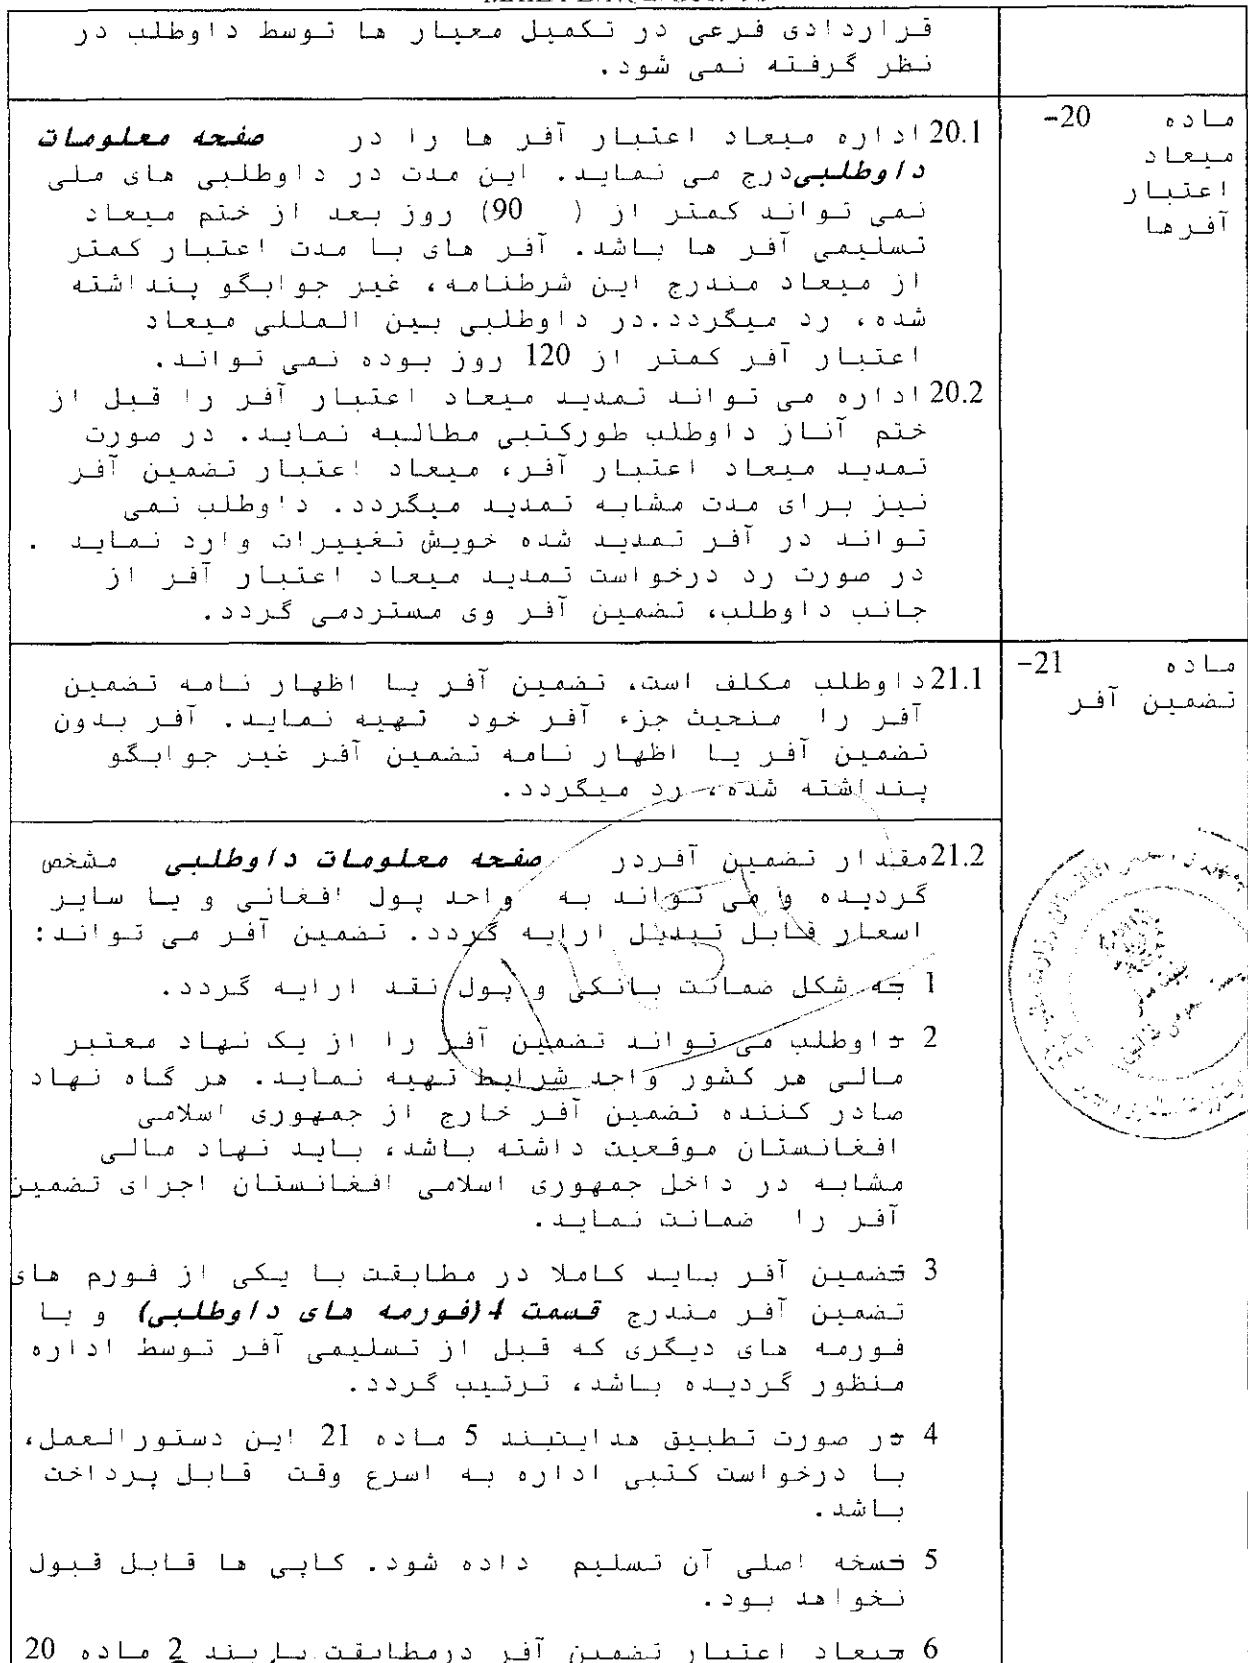 قراردادی فرعی در تکمیل معیار ها توسط داوطلب در
نظر گرفته نمی شود.
ماده 20-
میعاد
اعتبار
آفرها
20.1 اداره میعاد اعتبار آفر ها را در صفحه معلومات
داوطلبی درج می نماید. این مدت در داوطلبی های ملی
نمی تواند کمتر از ( 90) روز بعد از ختم میعاد
تسلیمی آفر ها باشد. آفر های با مدت اعتبار کمتر
از میعاد مندرج این شرطنامه، غیر جوابگو پنداشته
شده، رد میگردد.در داوطلبی بین المللی میعاد
اعتبار آفر کمتر از 120 روز بوده نمی تواند.
20.2 اداره می تواند تمدید میعاد اعتبار آفر را قبل از
ختم آناز داوطلب طورکتبی مطالبه نماید. در صورت
تمدید میعاد اعتبار آفر، میعاد اعتبار تضمین آفر
نیز برای مدت مشابه تمدید میگردد. داوطلب نمی
تواند در آفر تمدید شده خویش تغییرات وارد نماید .
در صورت رد درخواست تمدید میعاد اعتبار آفر از
جانب داوطلب، تضمین آفر وی مستردمی گردد.
ماده 21-
تضمین آفر
21.1 داوطلب مکلف است، تضمین آفر یا اظهار نامه تضمین
آفر را منحیث جزء آفر خود تهیه نماید. آفر بدون
تضمین آفر یا اظهار نامه تضمین آفر غیر جوابگو
پنداشته شده، رد میگردد.
21.2 مقدار تضمین آفردر صفحه معلومات داوطلبی مشخص
گردیده و می تواند به واحد پول افغانی و یا سایر
اسعار قابل تبدیل ارایه گردد. تضمین آفر می تواند:
1 به شکل ضمانت بانکی و پول نقد ارایه گردد.
2 داوطلب می تواند تضمین آفر را از یک نهاد معتبر
مالی هر کشور واجد شرایط تهیه نماید. هر گاه نهاد
صادر کننده تضمین آفر خارج از جمهوری اسلامی
افغانستان موقعیت داشته باشد، باید نهاد مالی
مشابه در داخل جمهوری اسلامی افغانستان اجرای تضمین
آفر را ضمانت نماید.
3 تضمین آفر باید کاملا در مطابقت با یکی از فورم های
تضمین آفر مندرج قسمت 4(فورمه های داوطلبی) و یا
فورمه های دیگری که قبل از تسلیمی آفر توسط اداره
منظور گردیده باشد، ترتیب گردد.
4 در صورت تطبیق هدایتبند 5 ماده 21 این دستورالعمل،
با درخواست کتبی اداره به اسرع وقت قابل پرداخت
باشد.
5 نسخه اصلی آن تسلیم داده شود. کاپی ها قابل قبول
نخواهد بود.
6 میعاد اعتبار تضمین آفر درمطابقت با بند 2 ماده 20